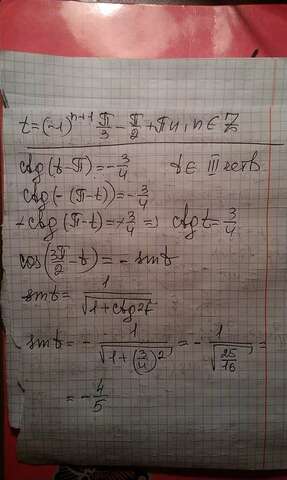 t=(-1)^{n+1} π/3 - π/2 + πn, n∈Z
ctg(t-π)=-3/4 t∈ III четв
ctg(-(π-t))=-3/4
-ctg(π-t)=-3/4 => ctg t=3/4
cos(3π/2 - t) = - sint
sint = 1/√(1+ctg²t)
sint = - 1/√(1+(3/4)²) = - 1/√(25/16) =
= -4/5